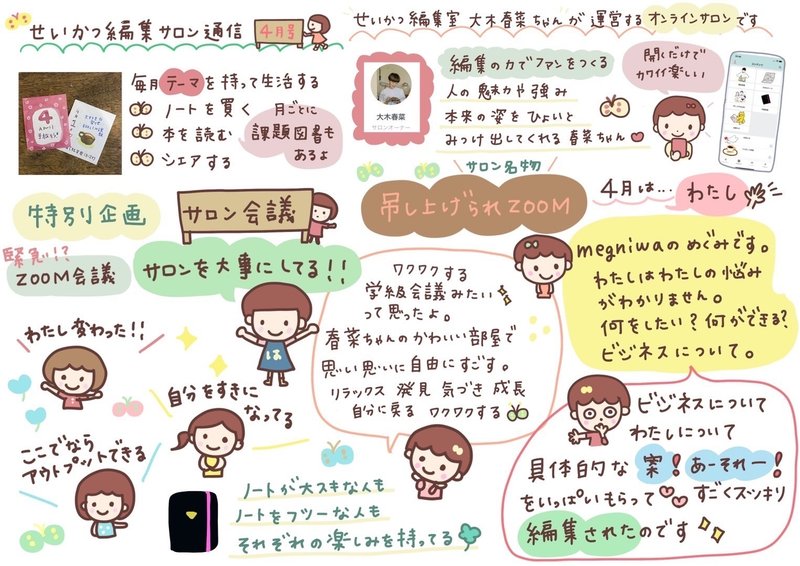 せいかつ編集サロン通信
4月号
せいかつ編集室 大木春菜ちゃんが運営するオンラインサロンです
毎月テーマを持って生活する
ノートを買く
本を読む
シェアする
月ごとに
課題図書も
あるよ
大木春菜
サロンオーナー
編集の力でファンをつくる
人の魅力や強み
本来の姿をひょいと
みっけ出してくれる春菜ちゃん
開くだけで
カワイイ楽しい
特別企画
サロン会議
緊急!?
ZOOM会議
サロンを大事にしてる!!
わたし変わった!!
自分をすきに
なってる
ここでなら
アウトプットできる
サロン名物
吊し上げられZOOM
4月は…
わたし
ワクワクする
学級会議みたい
って思ったよ。
春菜ちゃんのかわいい部屋で
思い思いに自由にすごす。
リラックス 発見 気づき 成長
自分に戻る ワクワクする
megniwaのめぐみです。
わたしはわたしの悩み
がわかりません。
何をしたい?何ができる?
ビジネスについて。
ビジネスについて
わたしについて
具体的な案!あーそれー!
をいっぱいもらって すごくスッキリ
編集されたのです
ノートが大スキな人も
ノートをフツーな人も
それぞれの楽しみを持ってる